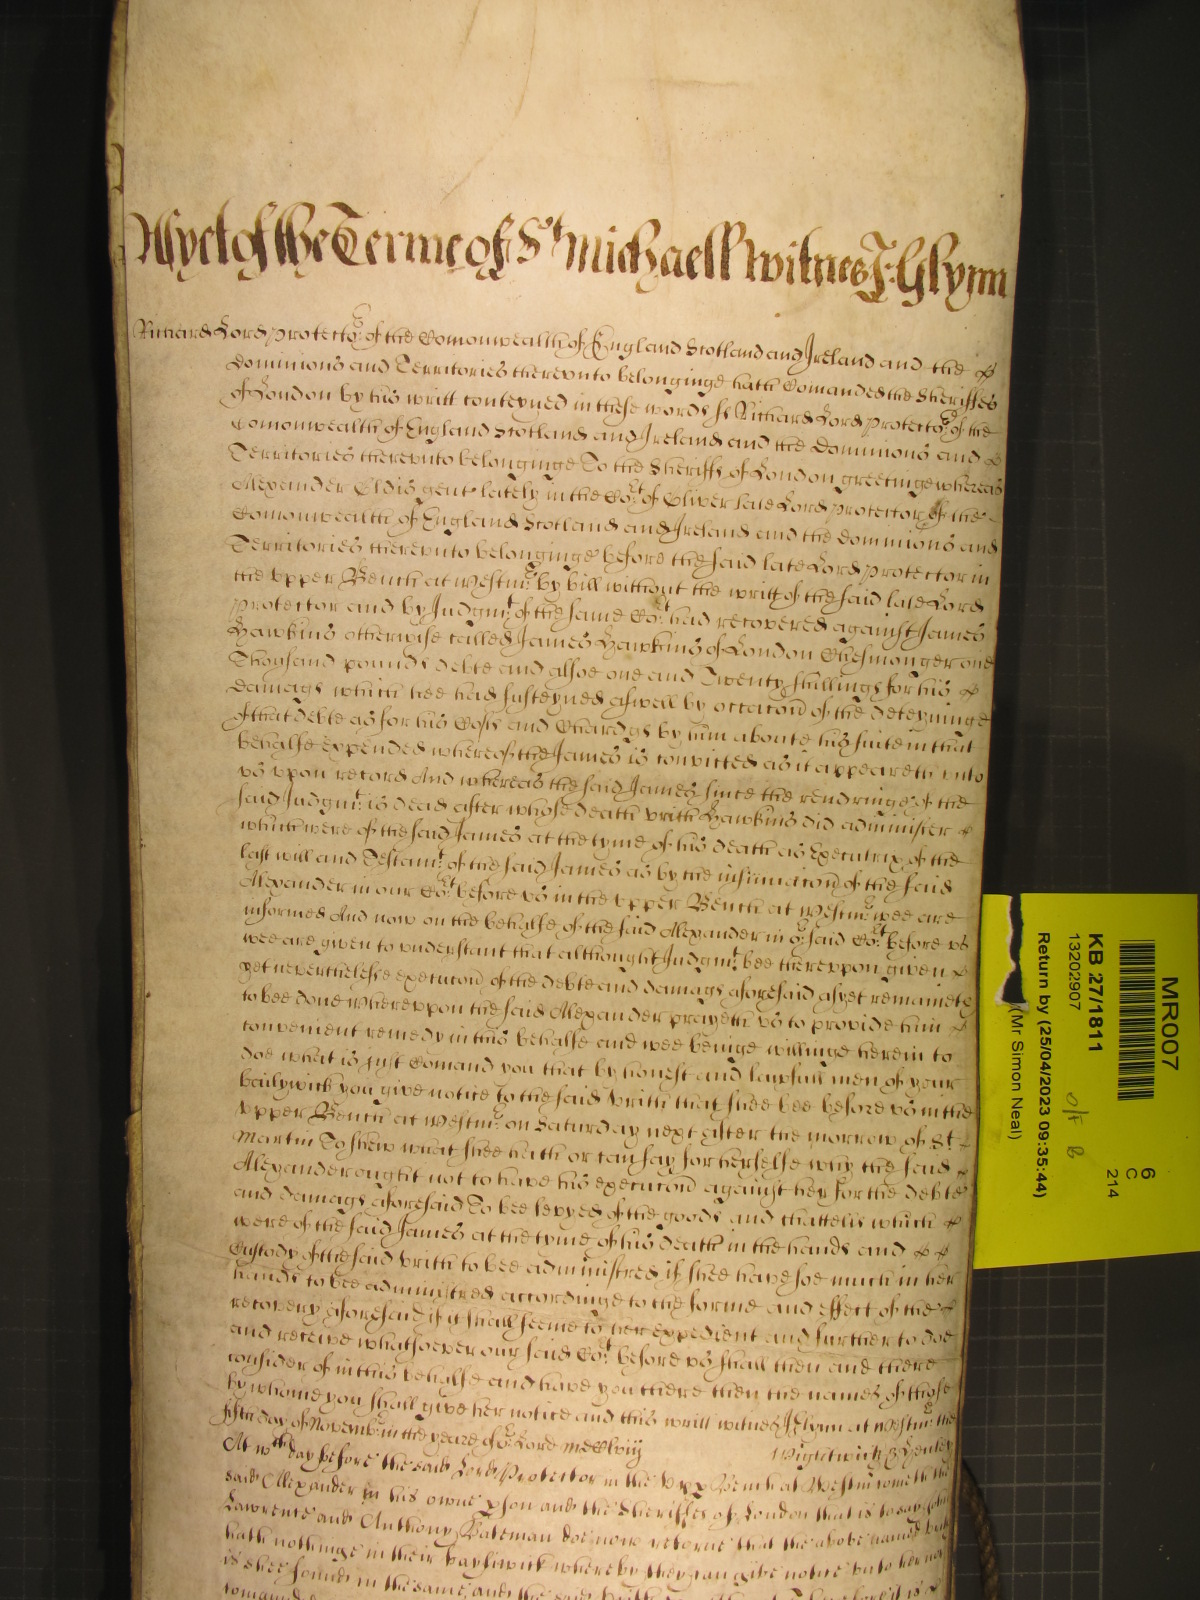 Yet of the Terme of St Michaell Witnes J: Glynn
Richard Lord Protector of the Comonwealth of England Scotland and Ireland and the
dominions and Territories thereunto belonginge hath Comanded the Sheriffes
of London by his writt conteyned in these words ss Richard Lord Protector of the
Comonwealth of England Scotland and Ireland and the dominions and
Territories thereunto belonginge To the Sheriffs of London greetinge whereas
Alexander Eldis gent lately in the Cort of Oliver late Lord Protector of the
Comonwealth of England Scotland and Ireland and the dominions and
Territories thereunto belonginge before the said late Lord Protector in
the upper Bench at Westmr by bill without the writt of the said late Lord
Protector and by Judgmt of the same Cort had recovered against James
Hawkins otherwise called James Hawkins of London Chesmonger one
Thousand pounds debte and alsoe one and Twenty shillings for his
damags which hee had susteyned aswell by occacon of the deteyninge
of that debte as for his Costs and Chardgs by him aboute his suite in that
behalfe expended whereof the James is convicted as it appeareth unto
us upon record And whereas the said James since the rendringe of the
said Judgmt is dead after whose death Hawkins did administer
which were of the said James at the tyme of his death as Executrix of the
last will and Testamt of the said James as by the insinuacon of the said
Alexander in our Cort before us in the upper Bench at Westmr wee are
informed And now on the behalfe of the said Alexander in or said Cort before us
wee are given to understant that althought Judgmt bee thereuppon given
yet neverthelesse execucon of the debte and damags aforesaid as yet remaineth
to bee done whereuppon the said Alexander prayeth us to provide him
convenient remedy in this behalfe and wee beinge willinge herein to
doe what is just Comand you that by honest and lawfull men of your
bailywick you give notice to the said that shee bee before us in the
upper Bench at Westmr on Saturday next after the morrow of St
Martin To shew what shee hath or can say for herselfe why the said
Alexander ought not to have his execucon against her for the debte
and damags aforesaid To bee levyed of the goods and chattells which
were of the said James at the tyme of his death in the hands and
Custody of the said to bee administred if shee have soe much in her
hands to bee administred accordinge to the forme and effect of the
recovery aforesaid if it shall seeme to her expedient and further to doe
and receive whatsoever our said Cort before us shall then and there
consider of in this behalfe and have you there then the names of those
by whome you shall give her notice and this writt witnes J Glynn at Westmr the
fifth day of Novembr in the yeare of or Lord mdclviij Wightwick & Henley
At wch day before the said Lord Protector in the upp Bench at Westmr cometh the
said Alexander in his owne pson and the Sheriffes of London that is to say John
Lawrence and Anthony Bateman doe now retorne that the above named
hath nothinge in their baylywick whereby they can give notice unto her nor
is shee found in the same and the said
MR007
KB 27/1811
13202907
Return by (25/04/2023 09:35:44)
(Mr Simon Neal)
6
C
214